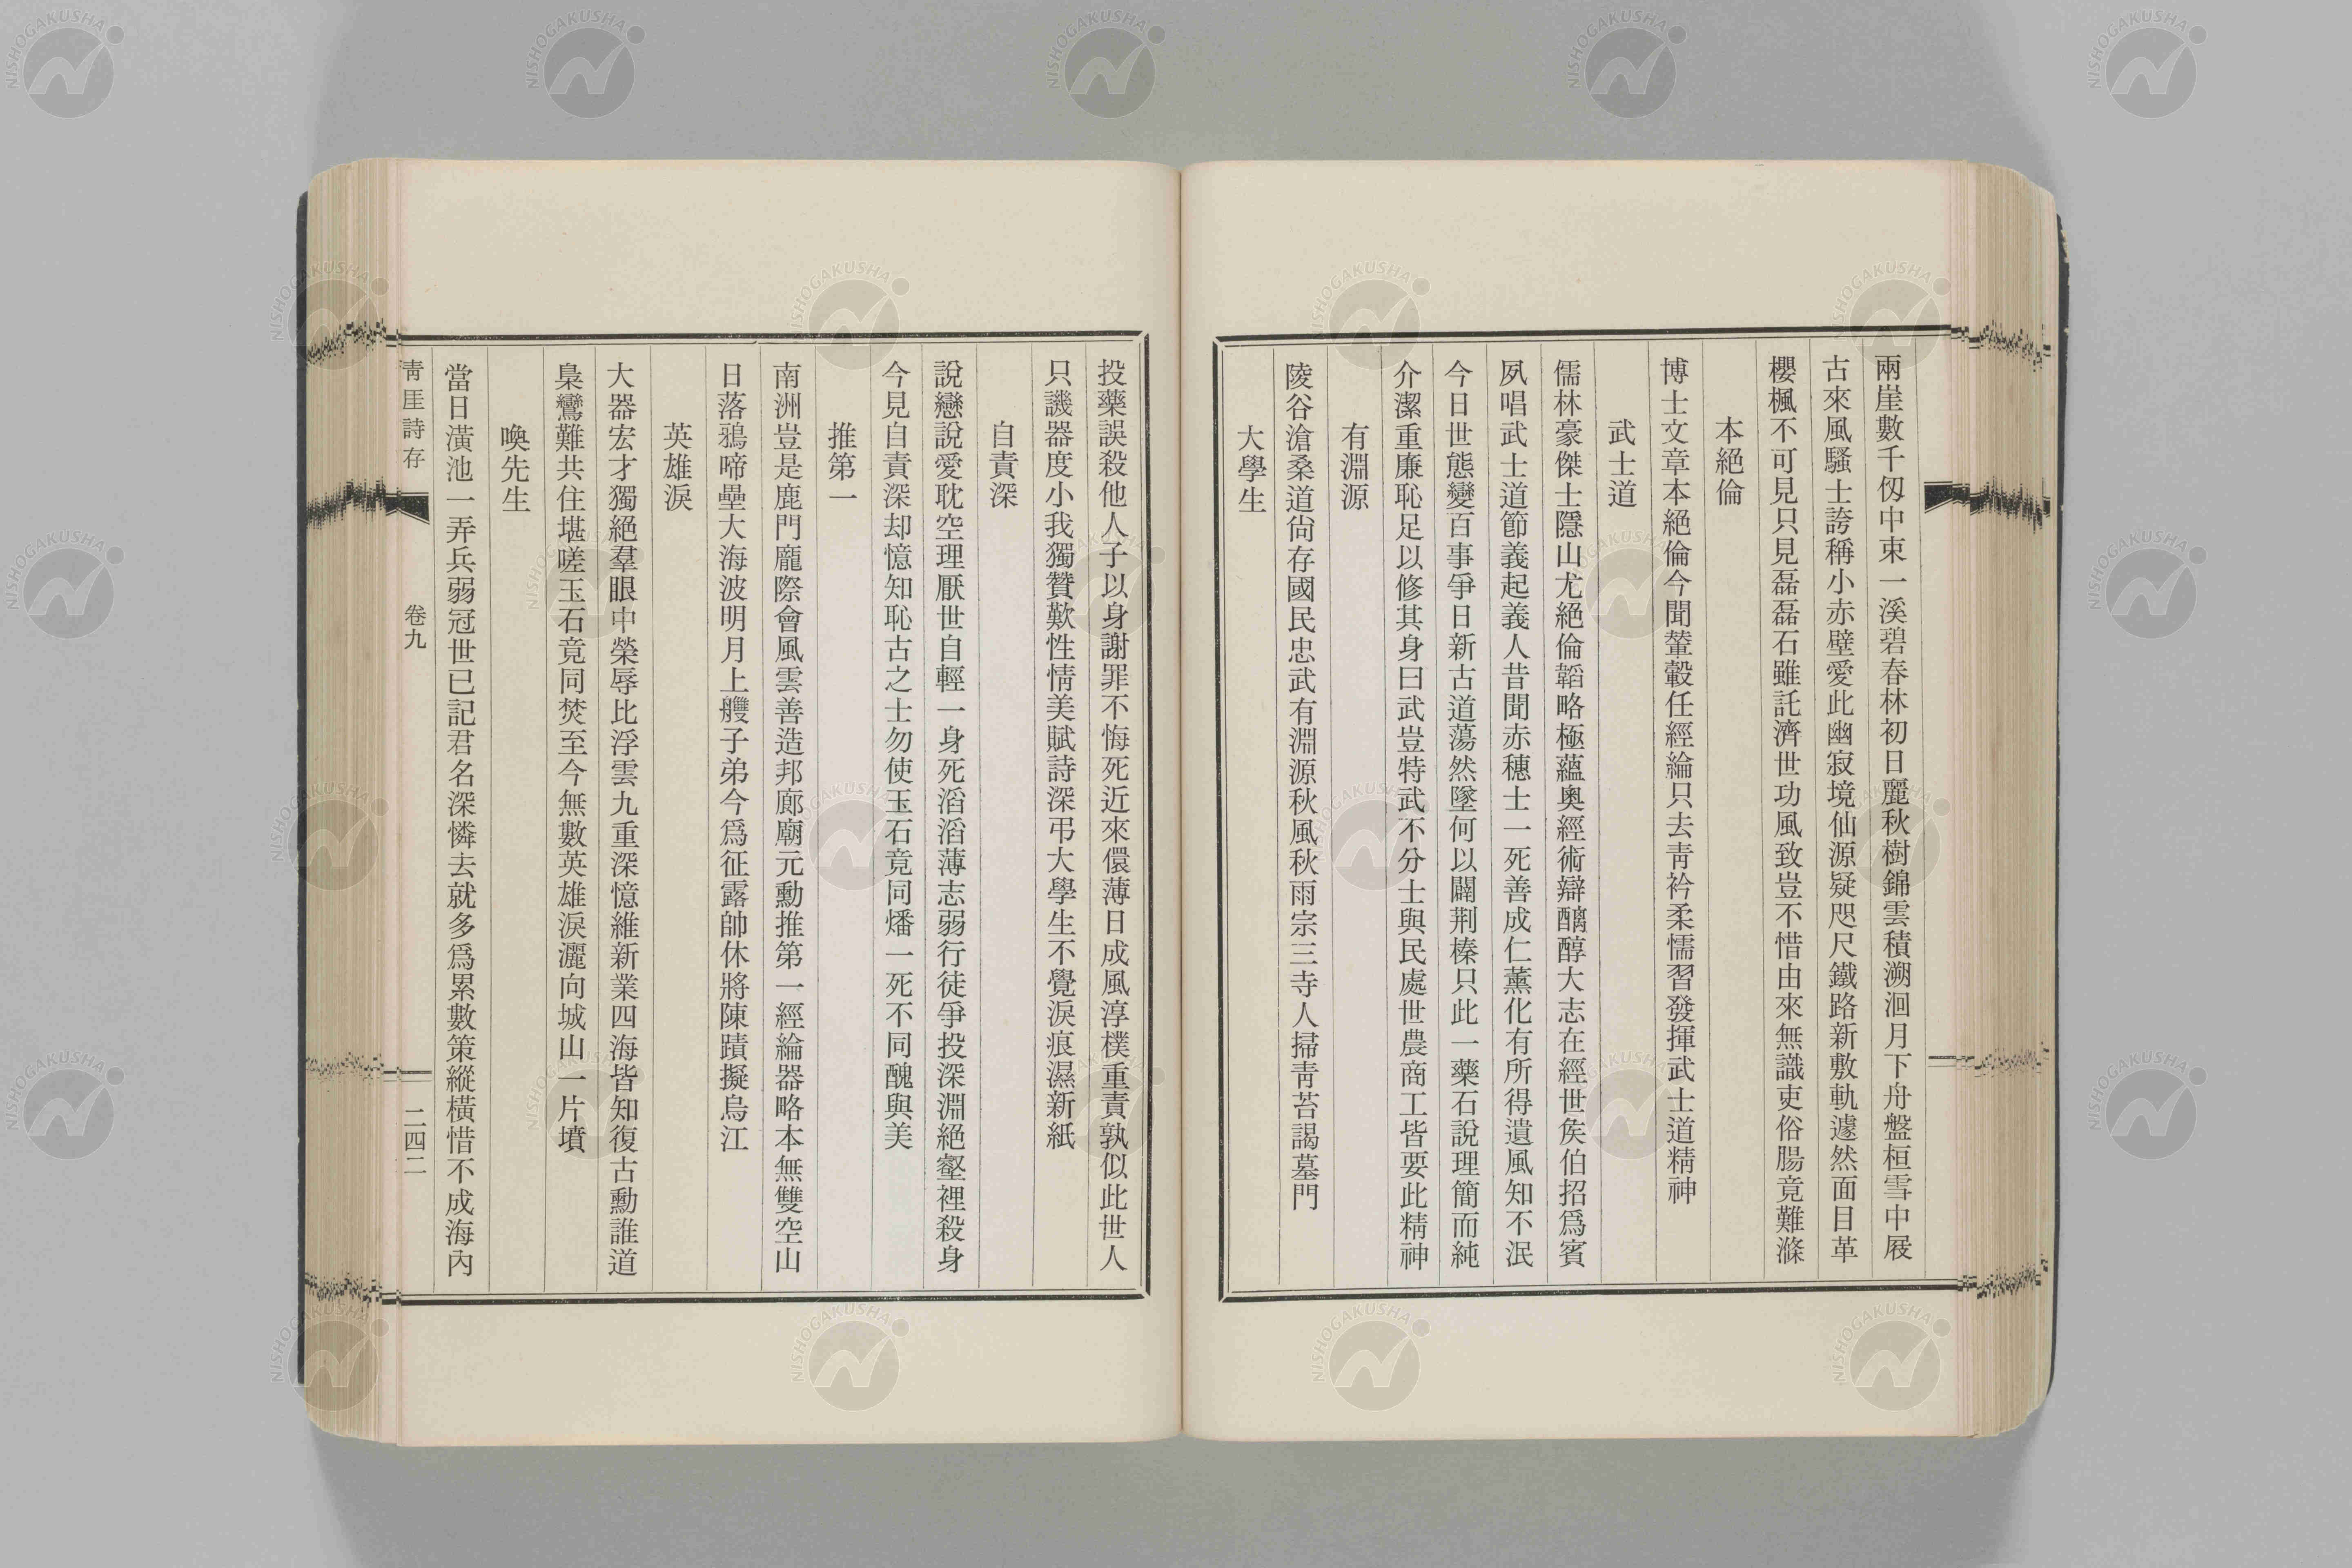 兩崖數千仭中束一溪碧春林初日麗秋樹錦雲積溯洄月下舟盤桓雪中屐
古來風騷士誇稱小赤壁愛此幽寂境仙源疑咫尺鐵路新敷軌遽然面目革
櫻楓不可見只見磊磊石雖託濟世功風致豈不惜由來無識吏俗腸竟難滌
本絕倫
博士文章本絕倫今聞輦轂任經綸只去靑衿柔懦習發揮武士道精神
武士道
儒林豪傑士隱山尤絕倫韜略極蘊奧經術辯醨醇大志在經世矦伯招爲賓
夙唱武士道節義起義人昔聞赤穗士一死善成仁薰化有所得遺風知不泯
今日世態變百事爭日新古道蕩然墜何以闢荆榛只此一藥石說理簡而純
介潔重廉恥足以修其身曰武豈特武不分士與民處世農商工皆要此精神
有淵源
陵谷滄桑道尙存國民忠武有淵源秋風秋雨宗三寺人掃靑苔謁墓門
大學生
投藥誤殺他人子以身謝罪不悔死近來儇薄日成風淳樸重責孰似此世人
只譏器度小我獨贊歎性情美賦詩深弔大學生不覺淚痕濕新紙
自責深
說戀說愛耽空理厭世自輕一身死滔滔薄志弱行徒爭投深淵絕壑裡殺身
今見自責深却憶知恥古之士勿使玉石竟同燔一死不同醜與美
推第一
南洲豈是鹿門龐際會風雲善造邦廊廟元勳推第一經綸器略本無雙空山
日落鴉啼壘大海波明月上艭子弟今爲征露帥休將陳蹟擬烏江
英雄淚
大器宏才獨絕羣眼中榮辱比浮雲九重深憶維新業四海皆知復古勳誰道
梟鸞難共住堪嗟玉石竟同焚至今無數英雄淚灑向城山一片墳
喚先生
當日潢池一弄兵弱冠世已記君名深憐去就多爲累數策縱橫惜不成海內
靑厓詩存
卷九
二四二
NISHOGAKUSHA